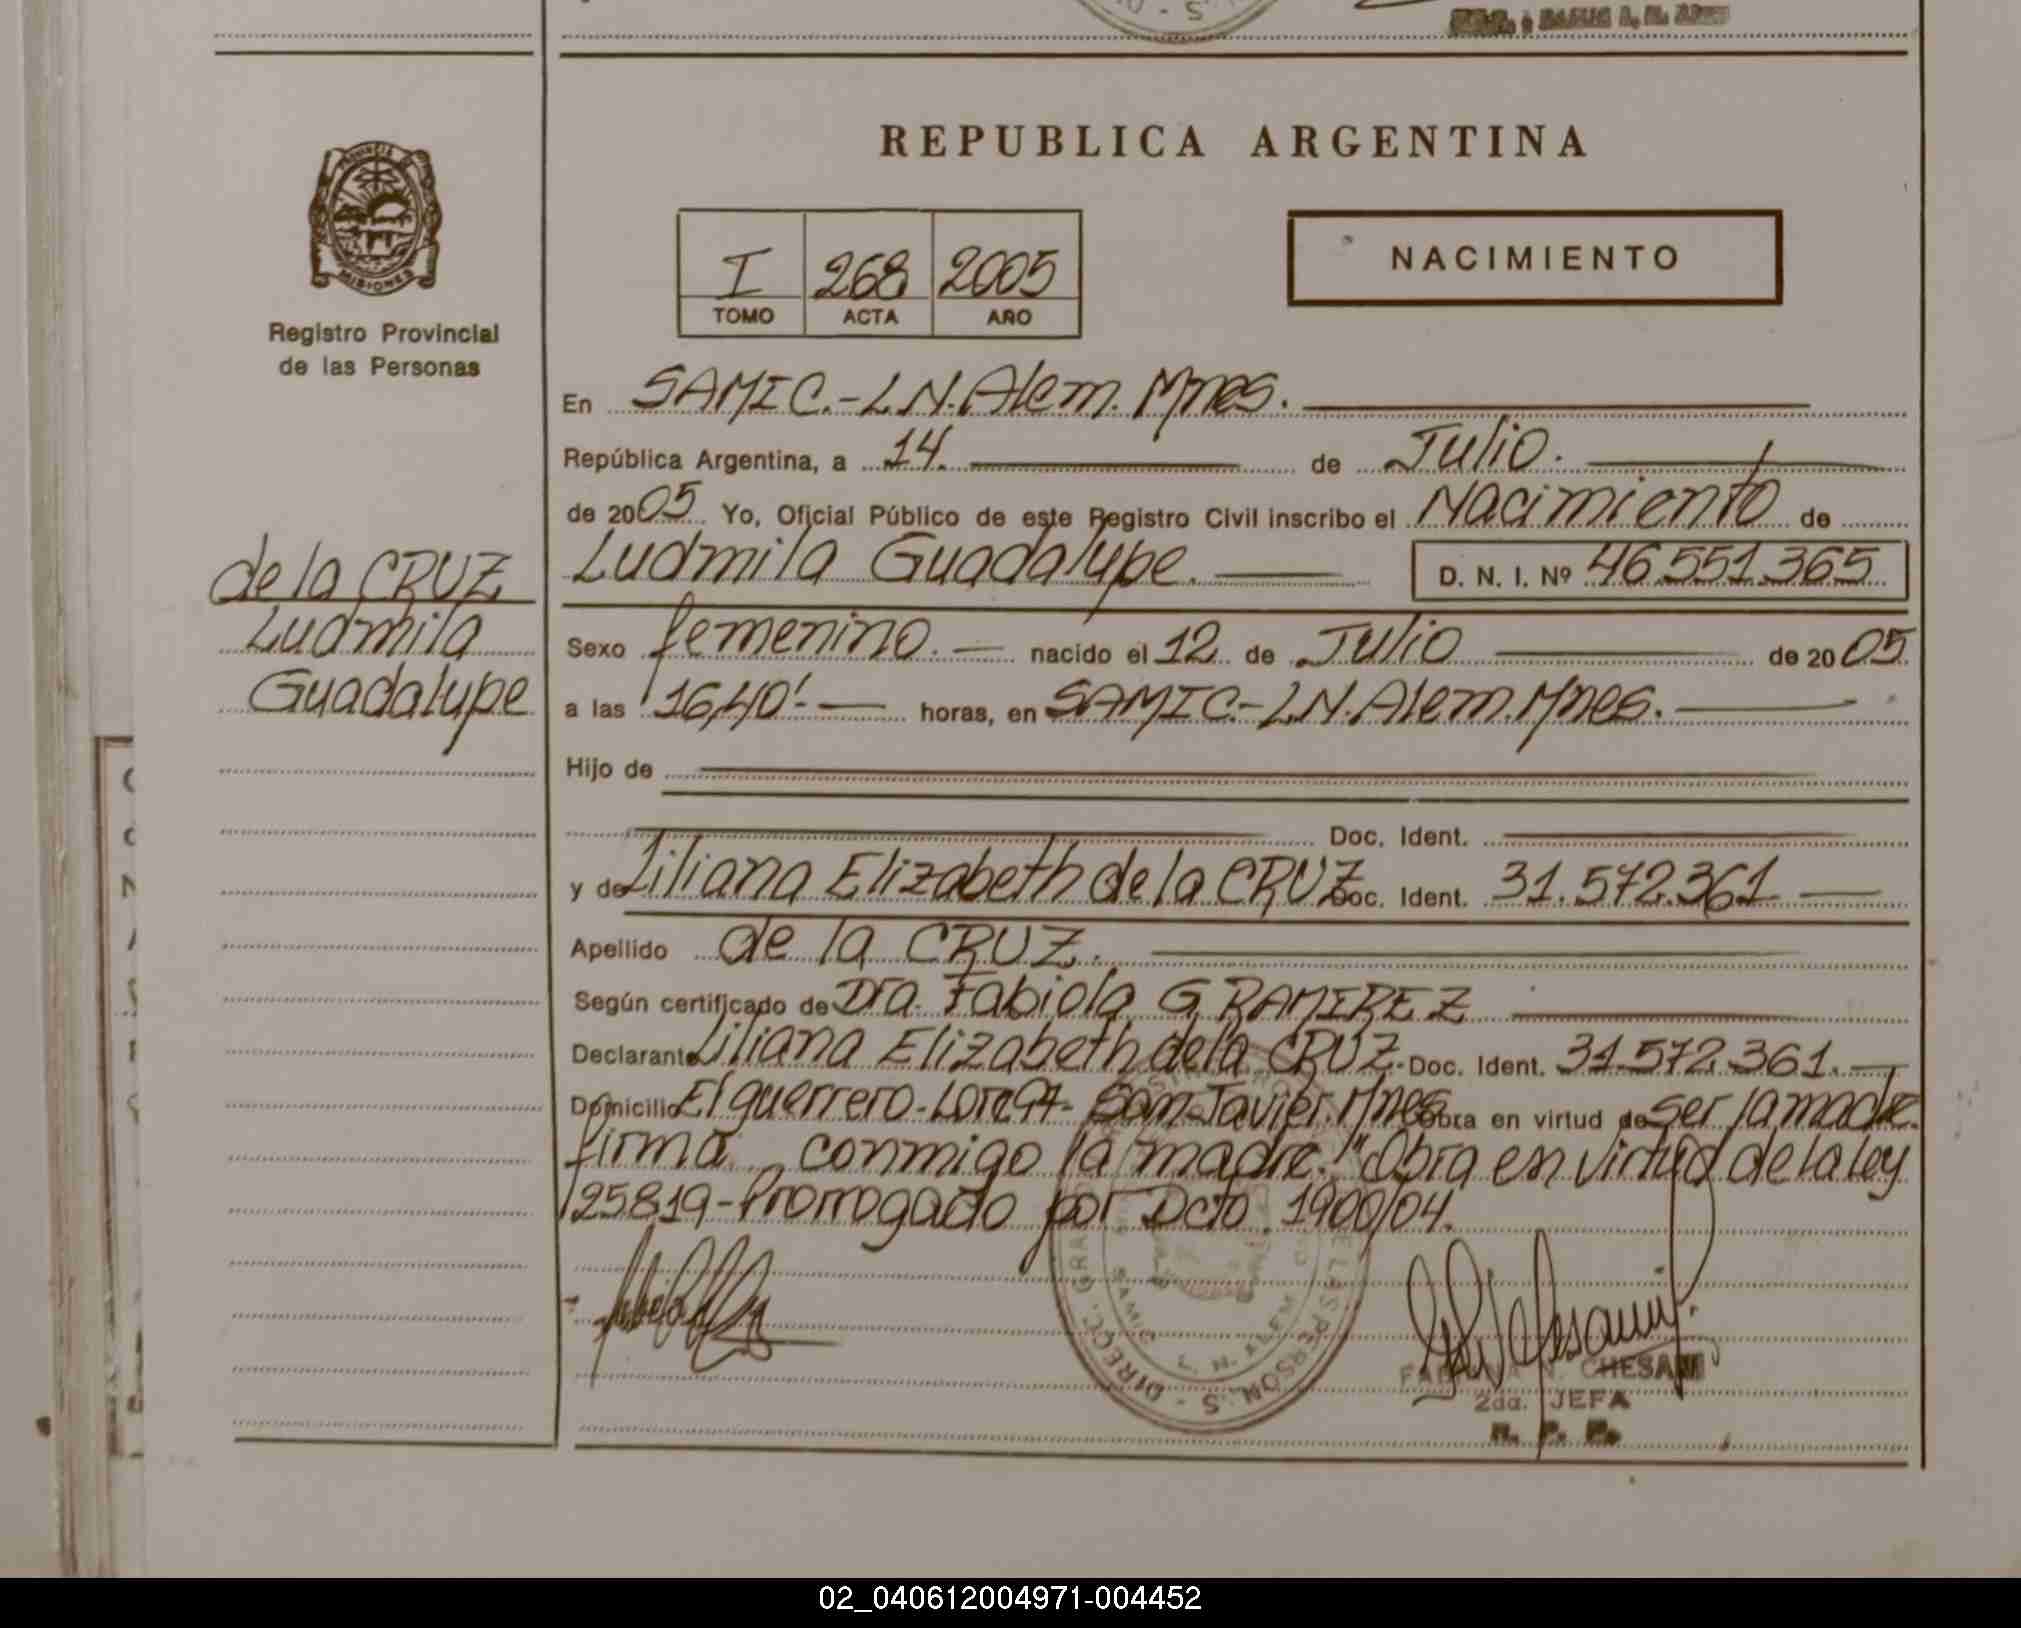 REPUBLICA ARGENTINA
PROVINCIA DE
MISIONES
Registro Provincial
de las Personas
I 268 2005
TOMO ACTA AÑO
NACIMIENTO
En SAMIC.-L.N.Alem. Mnes.
República Argentina, a 14. de Julio.
de 2005 Yo, Oficial Público de este Registro Civil inscribo el Nacimiento de
Ludmila Guadalupe. D. N. I. Nº 46.551.365
de la CRUZ
Ludmila
Guadalupe
Sexo femenino. nacido el 12 de Julio de 2005
a las 16,40'- horas, en SAMIC.-L.N.Alem.Mnes.
Hijo de
Doc. Ident.
y de Liliana Elizabeth de la CRUZ Doc. Ident. 31.572.361
Apellido de la CRUZ.
Según certificado de Dra. Fabiola G. RAMIREZ
Declarante Liliana Elizabeth de la CRUZ. Doc. Ident. 31.572.361.
Domicilio El guerrero- San Javier. Mnes. Obra en virtud de ser la madre.
firma conmigo la madre. "Obra en virtud de la ley
25819-Prorrogado por Dcto. 1900/04.
SAMIC
L. N. ALEM
CHESANI
2da. JEFA
R. P. P.
02_040612004971-004452